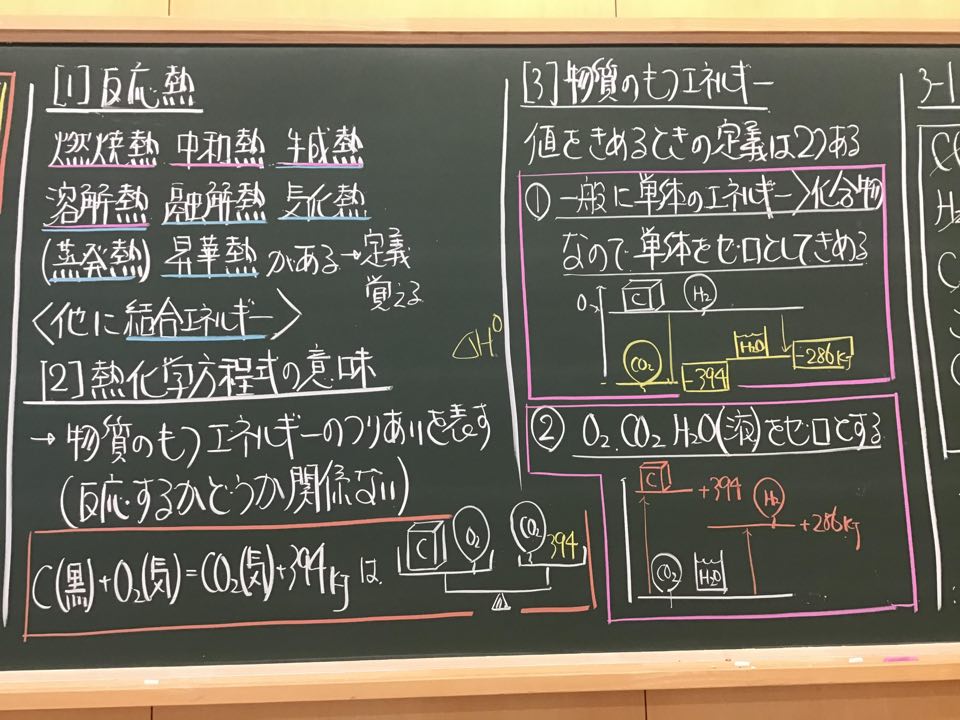 [1]反応熱
燃焼熱 中和熱 生成熱
溶解熱 融解熱 気化熱
(蒸発熱) 昇華熱 がある→定義
覚える
〈他に結合エネルギー〉
[2]熱化学方程式の意味
→物質のもつエネルギーのつりあいを表す
(反応するかどうか関係ない)
C(黒)+O₂(気)=CO₂(気)+394kJ は
C O₂ CO₂ 394
ΔH⁰
[3]物質のもつエネルギー
値をきめるときの定義は2つある
① 一般に単体のエネルギー>化合物
なので単体をゼロとしてきめる
O₂ C H₂
CO₂ -394 H₂O -286kJ
② O₂ CO₂ H₂O(液)をゼロとする
C +394 H₂ +286kJ
CO₂ H₂O
3-1
H₂